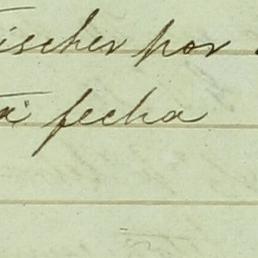 ischer por
fecha